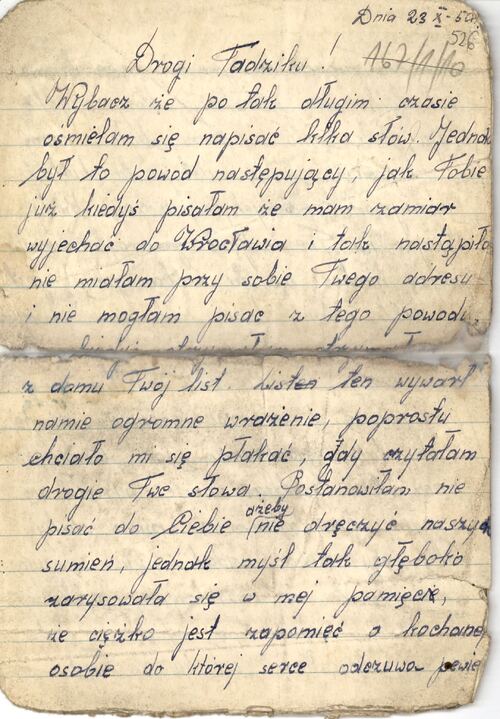 Dnia 23 X - 50
526
167/1/10
Drogi Tadziku!
Wybacz że po tak długim czasie
ośmielam się napisać kilka słów. Jednak
był to powód następujący, jak Tobie
już kiedyś pisałam że mam zamiar
wyjechać do Wrocławia i tak nastąpiło
nie miałam przy sobie Twego adresu
i nie mogłam pisać z tego powodu,
z domu Twój list. List ten wywarł
namie ogromne wrażenie, poprostu
chciało mi się płakać, gdy czytałam
drogie Twe słowa. Postanowiłam nie
pisać do Ciebie ażeby nie dręczyć naszych
sumień, jednak myśl tak głęboko
zarysowała się w mej pamięci,
że ciężko jest zapomieć o kochanej
osobie do której serce odczuwa pewie